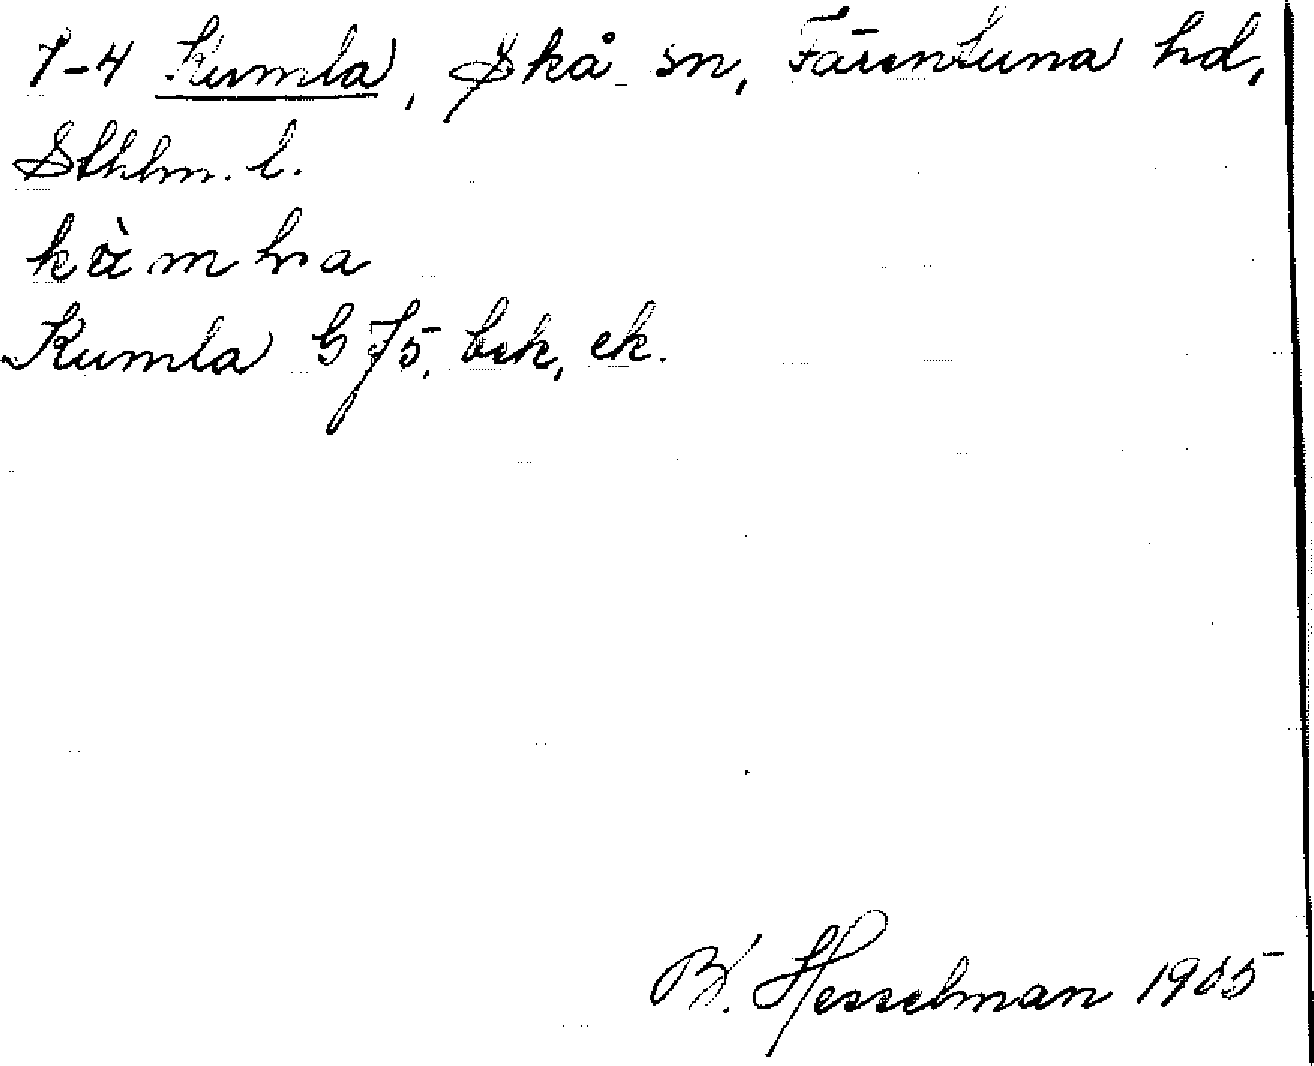 1-4 Kumla, Skå sn, Färentuna hd,
Sthlm. l.
Kumla G J5, bsk, ek.
B. Hesselman 1905